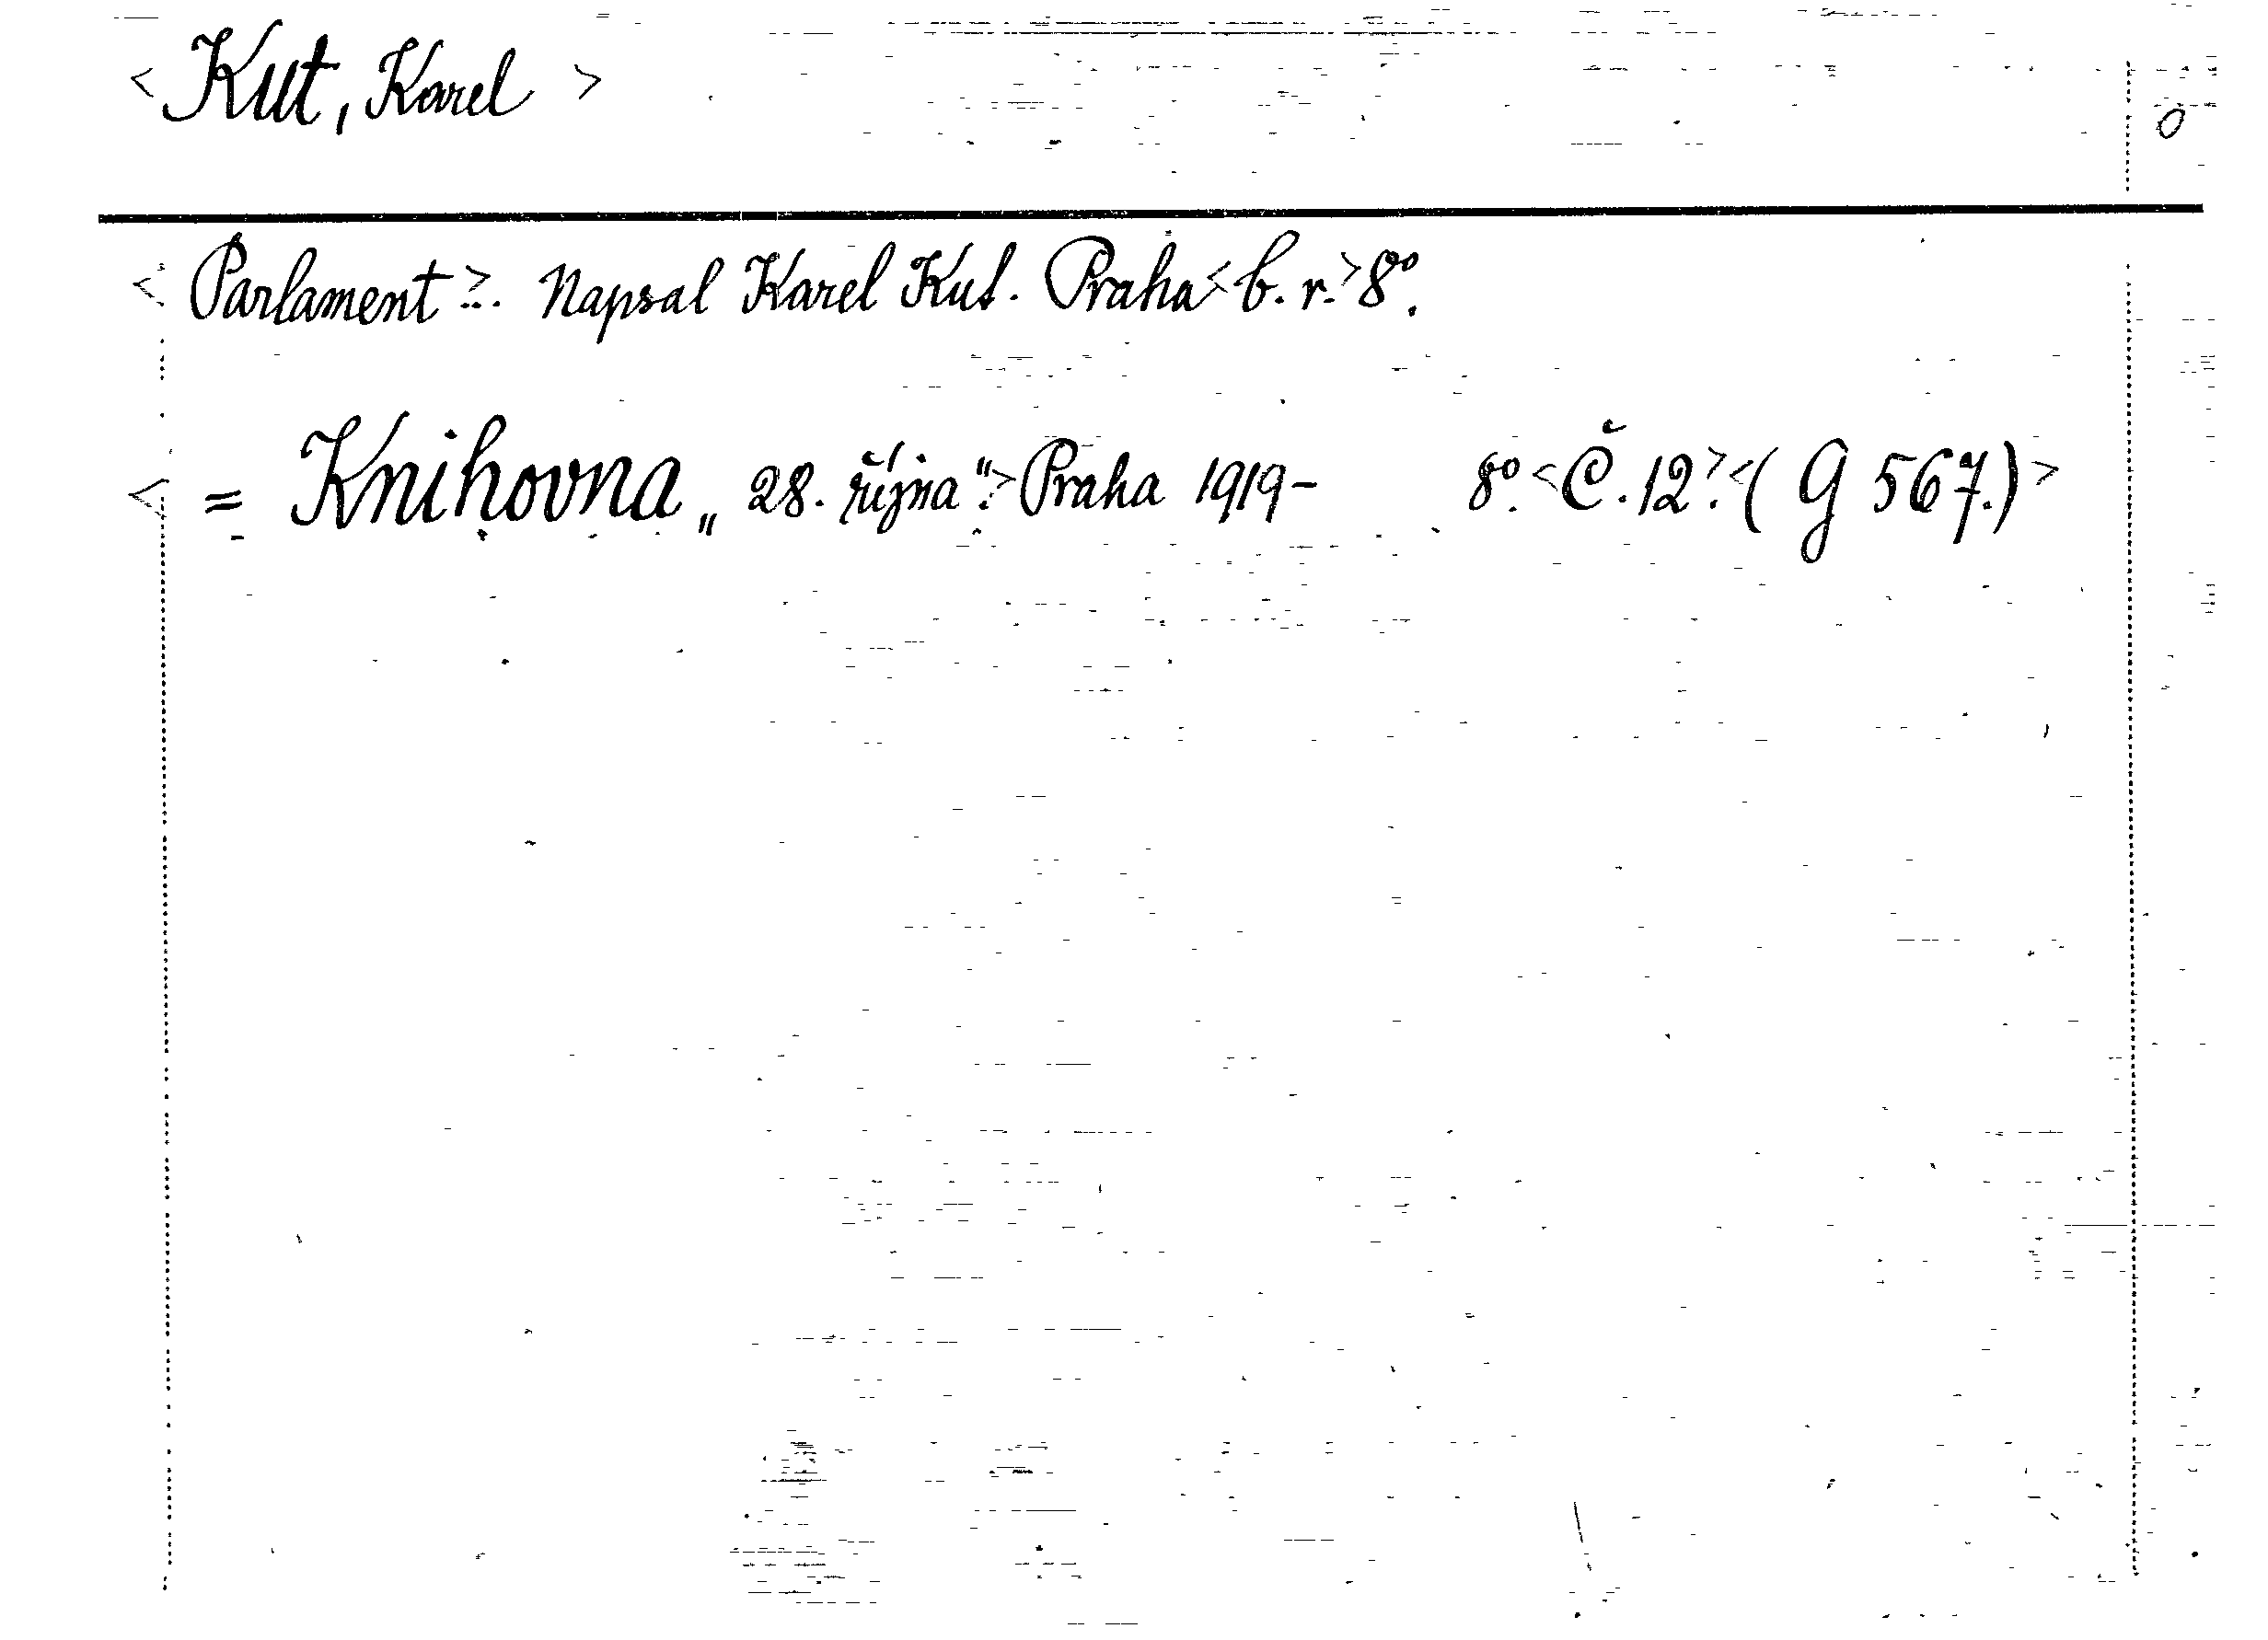 < Kut, Karel > 0
< Parlament >. Napsal Karel Kut. Praha < b. r. > 8°.
< = Knihovna „28. října“. > Praha 1919- 8°. < Č. 12. > < ( G 567. ) >